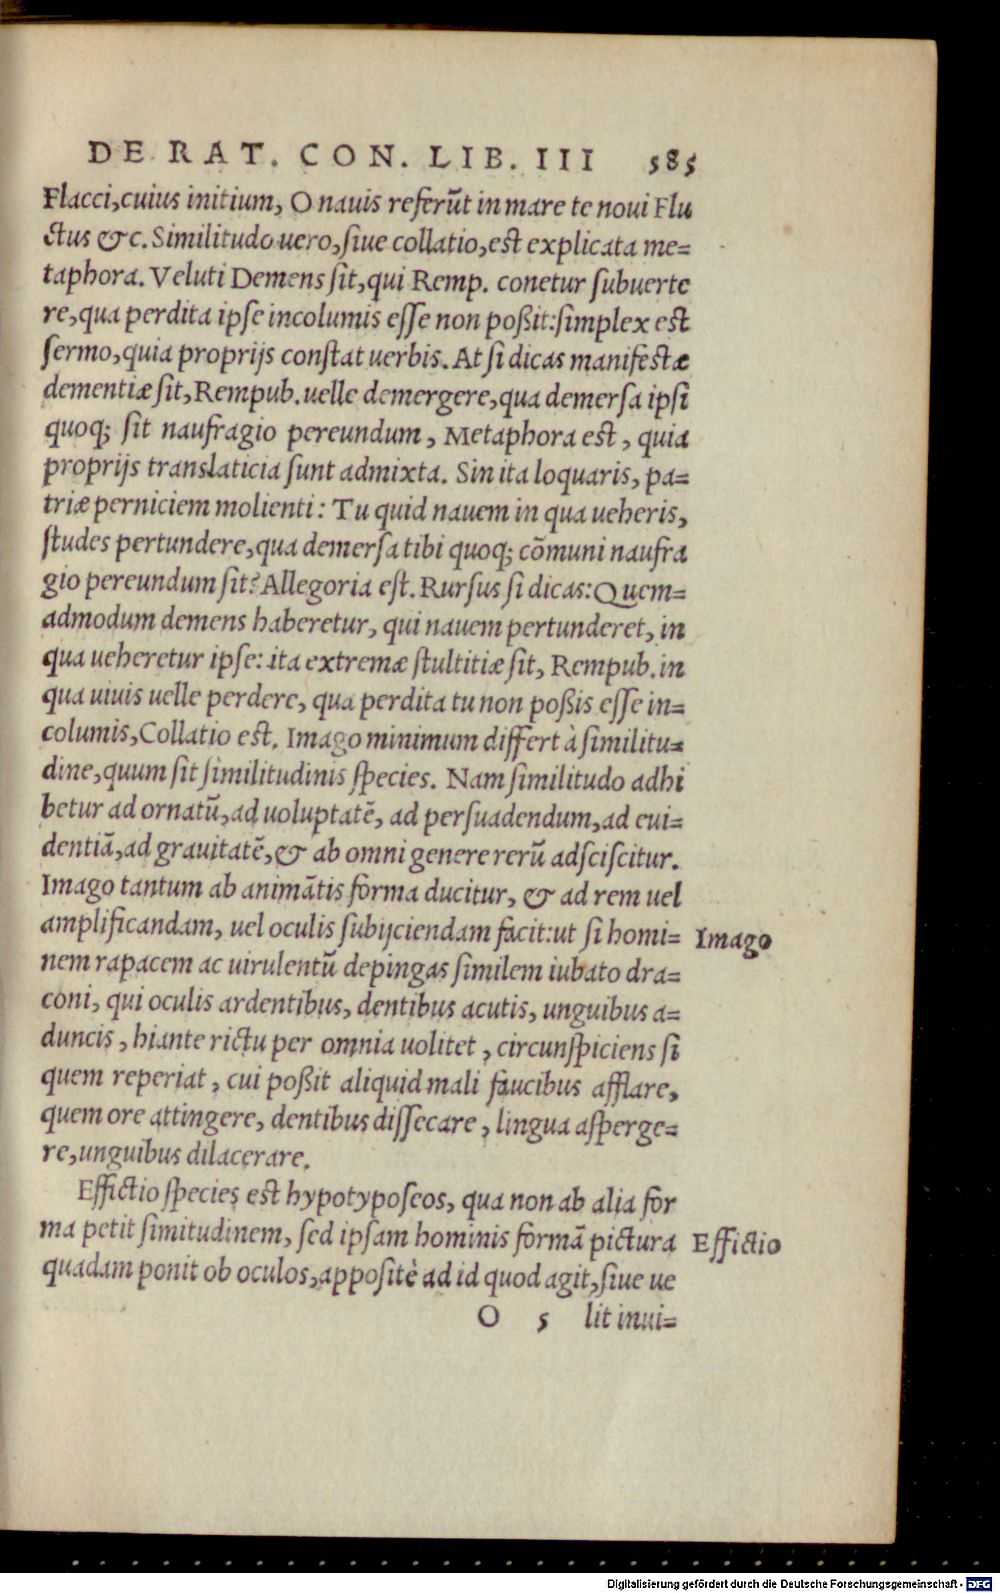 DE RAT. CON. LIB. III 585
Flacci, cuius initium, O nauis referūt in mare te noui Flu
ctus &c. Similitudo uero, ſiue collatio, eſt explicata me=
taphora. Veluti Demens ſit, qui Remp. conetur ſubuerte
re, qua perdita ipſe incolumis eſſe non poßit: ſimplex eſt
ſermo, quia proprijs conſtat uerbis. At ſi dicas manifeſtæ
dementiæ ſit, Rempub. uelle demergere, qua demerſa ipſi
quoq; ſit naufragio pereundum, Metaphora eſt, quia
proprijs translaticia ſunt admixta. Sin ita loquaris, pa=
triæ perniciem molienti: Tu quid nauem in qua ueheris,
ſtudes pertundere, qua demerſa tibi quoq; cōmuni naufra
gio pereundum ſit? Allegoria eſt. Rurſus ſi dicas: Quem=
admodum demens haberetur, qui nauem pertunderet, in
qua ueheretur ipſe: ita extremæ ſtultitiæ ſit, Rempub. in
qua uiuis uelle perdere, qua perdita tu non poßis eſſe in=
columis, Collatio eſt. Imago minimum differt à ſimilitu=
dine, quum ſit ſimilitudinis ſpecies. Nam ſimilitudo adhi
betur ad ornatū, ad uoluptatē, ad perſuadendum, ad eui=
dentiā, ad grauitatē, & ab omni genere rerū adſciſcitur.
Imago tantum ab animātis forma ducitur, & ad rem uel
amplificandam, uel oculis ſubijciendam facit: ut ſi homi= Imago
nem rapacem ac uirulentū depingas ſimilem iubato dra=
coni, qui oculis ardentibus, dentibus acutis, unguibus a=
duncis, hiante rictu per omnia uolitet, circunſpiciens ſi
quem reperiat, cui poßit aliquid mali faucibus afflare,
quem ore attingere, dentibus diſſecare, lingua aſperge=
re, unguibus dilacerare.
Effictio ſpecies eſt hypotypoſeos, qua non ab alia for
ma petit ſimitudinem, ſed ipſam hominis formā pictura Effictio
quadam ponit ob oculos, appoſitè ad id quod agit, ſiue ue
O 5 lit inui=
Digitalisierung gefördert durch die Deutsche Forschungsgemeinschaft - DFG